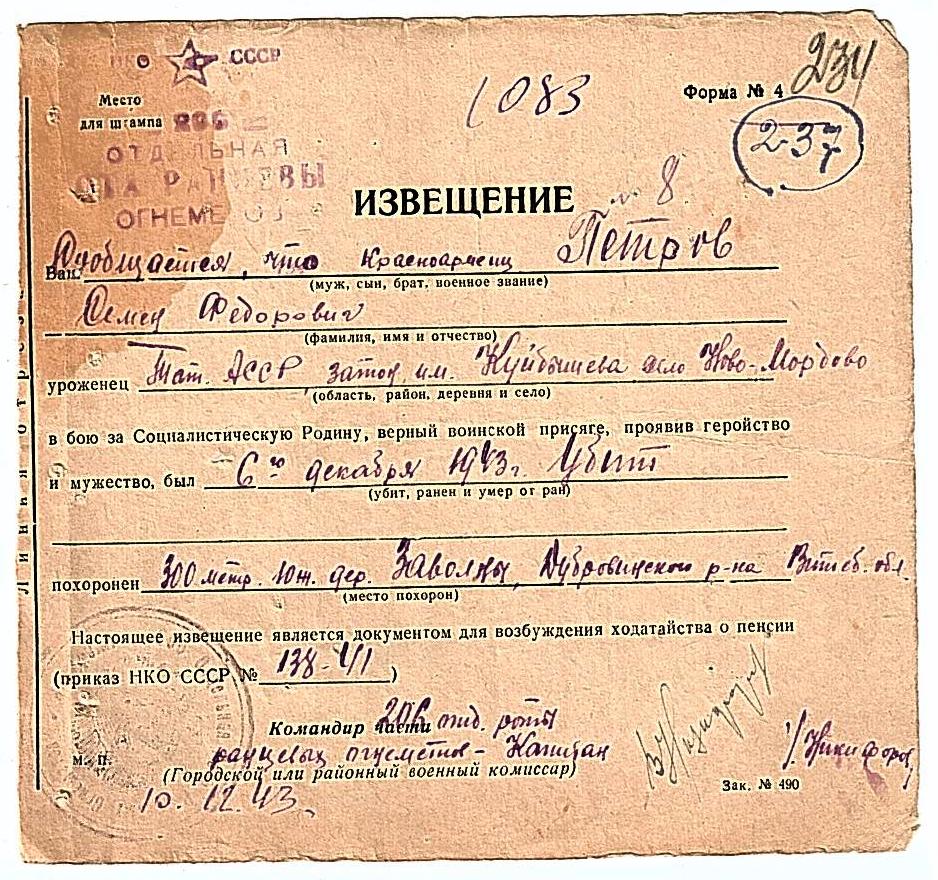 НКО СССР
234
Форма № 4
1083
Место
для штампа 206
237
ОТДЕЛЬНАЯ
РАНЦЕВЫ
ОГНЕМЕТОВ
№ 8
ИЗВЕЩЕНИЕ
Ваш Сообщается, что Красноармеец Петров
(муж, сын, брат, военное звание)
Семен Федорович
(фамилия, имя и отчество)
уроженец Тат. АССР, затон им. Куйбышева село Ново-Мордово
(область, район, деревня и село)
в бою за Социалистическую Родину, верный воинской присяге, проявив геройство
и мужество, был 6го декабря 1943г. Убит
(убит, ранен и умер от ран)
похоронен 300 метр. юж. дер. Заволны, Дубровинского р-на Витеб. обл.
(место похорон)
Настоящее извещение является документом для возбуждения ходатайства о пенсии
(приказ НКО СССР № 138-41)
Командир части 206 отд. роты
ранцевых огнеметов - Капитан
/Никифоров/
м. п.
(Городской или районный военный комиссар)
10.12.43.
Зак. № 490
Линия отреза